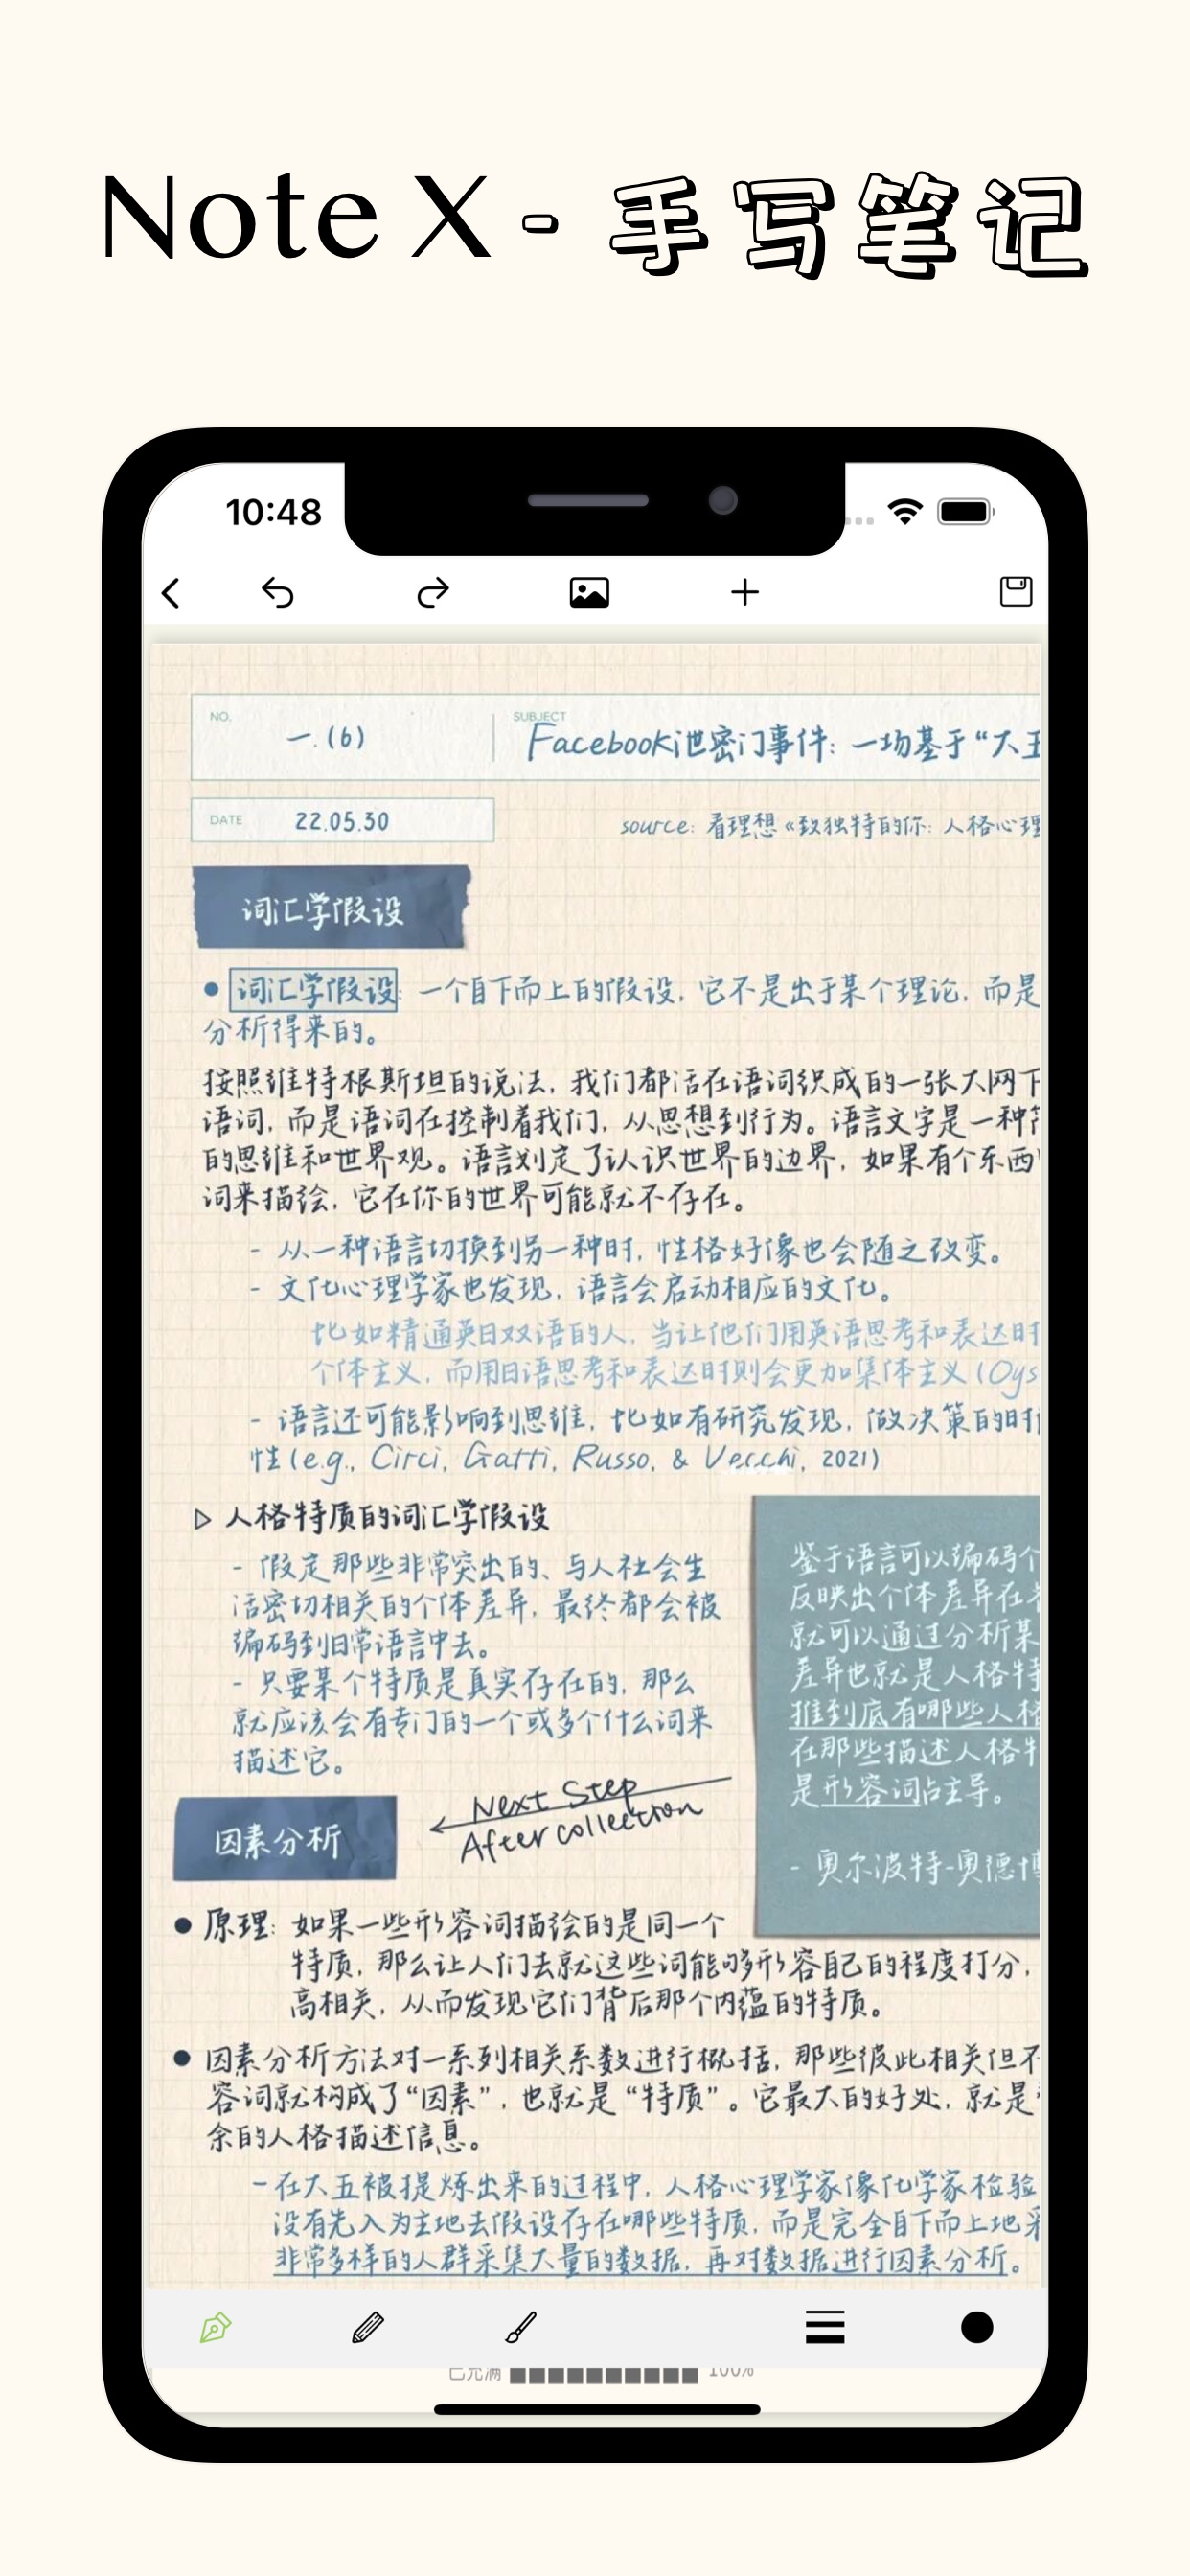 Note X - 手写笔记
10:48
NO.
一.(6)
SUBJECT
Facebook泄密门事件: 一场基于“大五
DATE
22.05.30
source: 看理想《致独特的你: 人格心理
词汇学假设
• 词汇学假设: 一个自下而上的假设, 它不是出于某个理论, 而是
分析得来的。
按照维特根斯坦的说法, 我们都活在语词织成的一张大网下
语词, 而是语词在控制着我们, 从思想到行为。语言文字是一种
的思维和世界观。语言划定了认识世界的边界, 如果有个东西
词来描绘, 它在你的世界可能就不存在。
- 从一种语言切换到另一种时, 性格好像也会随之改变。
- 文化心理学家也发现, 语言会启动相应的文化。
比如精通英日双语的人, 当让他们用英语思考和表达时
个体主义, 而用日语思考和表达时则会更加集体主义 (Oys
- 语言还可能影响到思维, 比如有研究发现, 做决策的时
性 (e.g., Circi, Gatti, Russo, & Vecchi, 2021)
▷ 人格特质的词汇学假设
- 假定那些非常突出的、与人社会生
活密切相关的个体差异, 最终都会被
编码到日常语言中去。
- 只要某个特质是真实存在的, 那么
就应该会有专门的一个或多个什么词来
描述它。
鉴于语言可以编码个
反映出个体差异在
就可以通过分析某
差异也就是人格特
推到底有哪些人格
在那些描述人格特
是形容词占主导。
- 奥尔波特-奥德博
Next Step
After collection
因素分析
• 原理: 如果一些形容词描绘的是同一个
特质, 那么让人们去就这些词能够形容自己的程度打分,
高相关, 从而发现它们背后那个内蕴的特质。
• 因素分析方法对一系列相关系数进行概括, 那些彼此相关但不
容词就构成了“因素”, 也就是“特质”。它最大的好处, 就是
余的人格描述信息。
- 在大五被提炼出来的过程中, 人格心理学家像化学家检验
没有先入为主地去假设存在哪些特质, 而是完全自下而上地采
非常多样的人群采集大量的数据, 再对数据进行因素分析。
已充满 100%